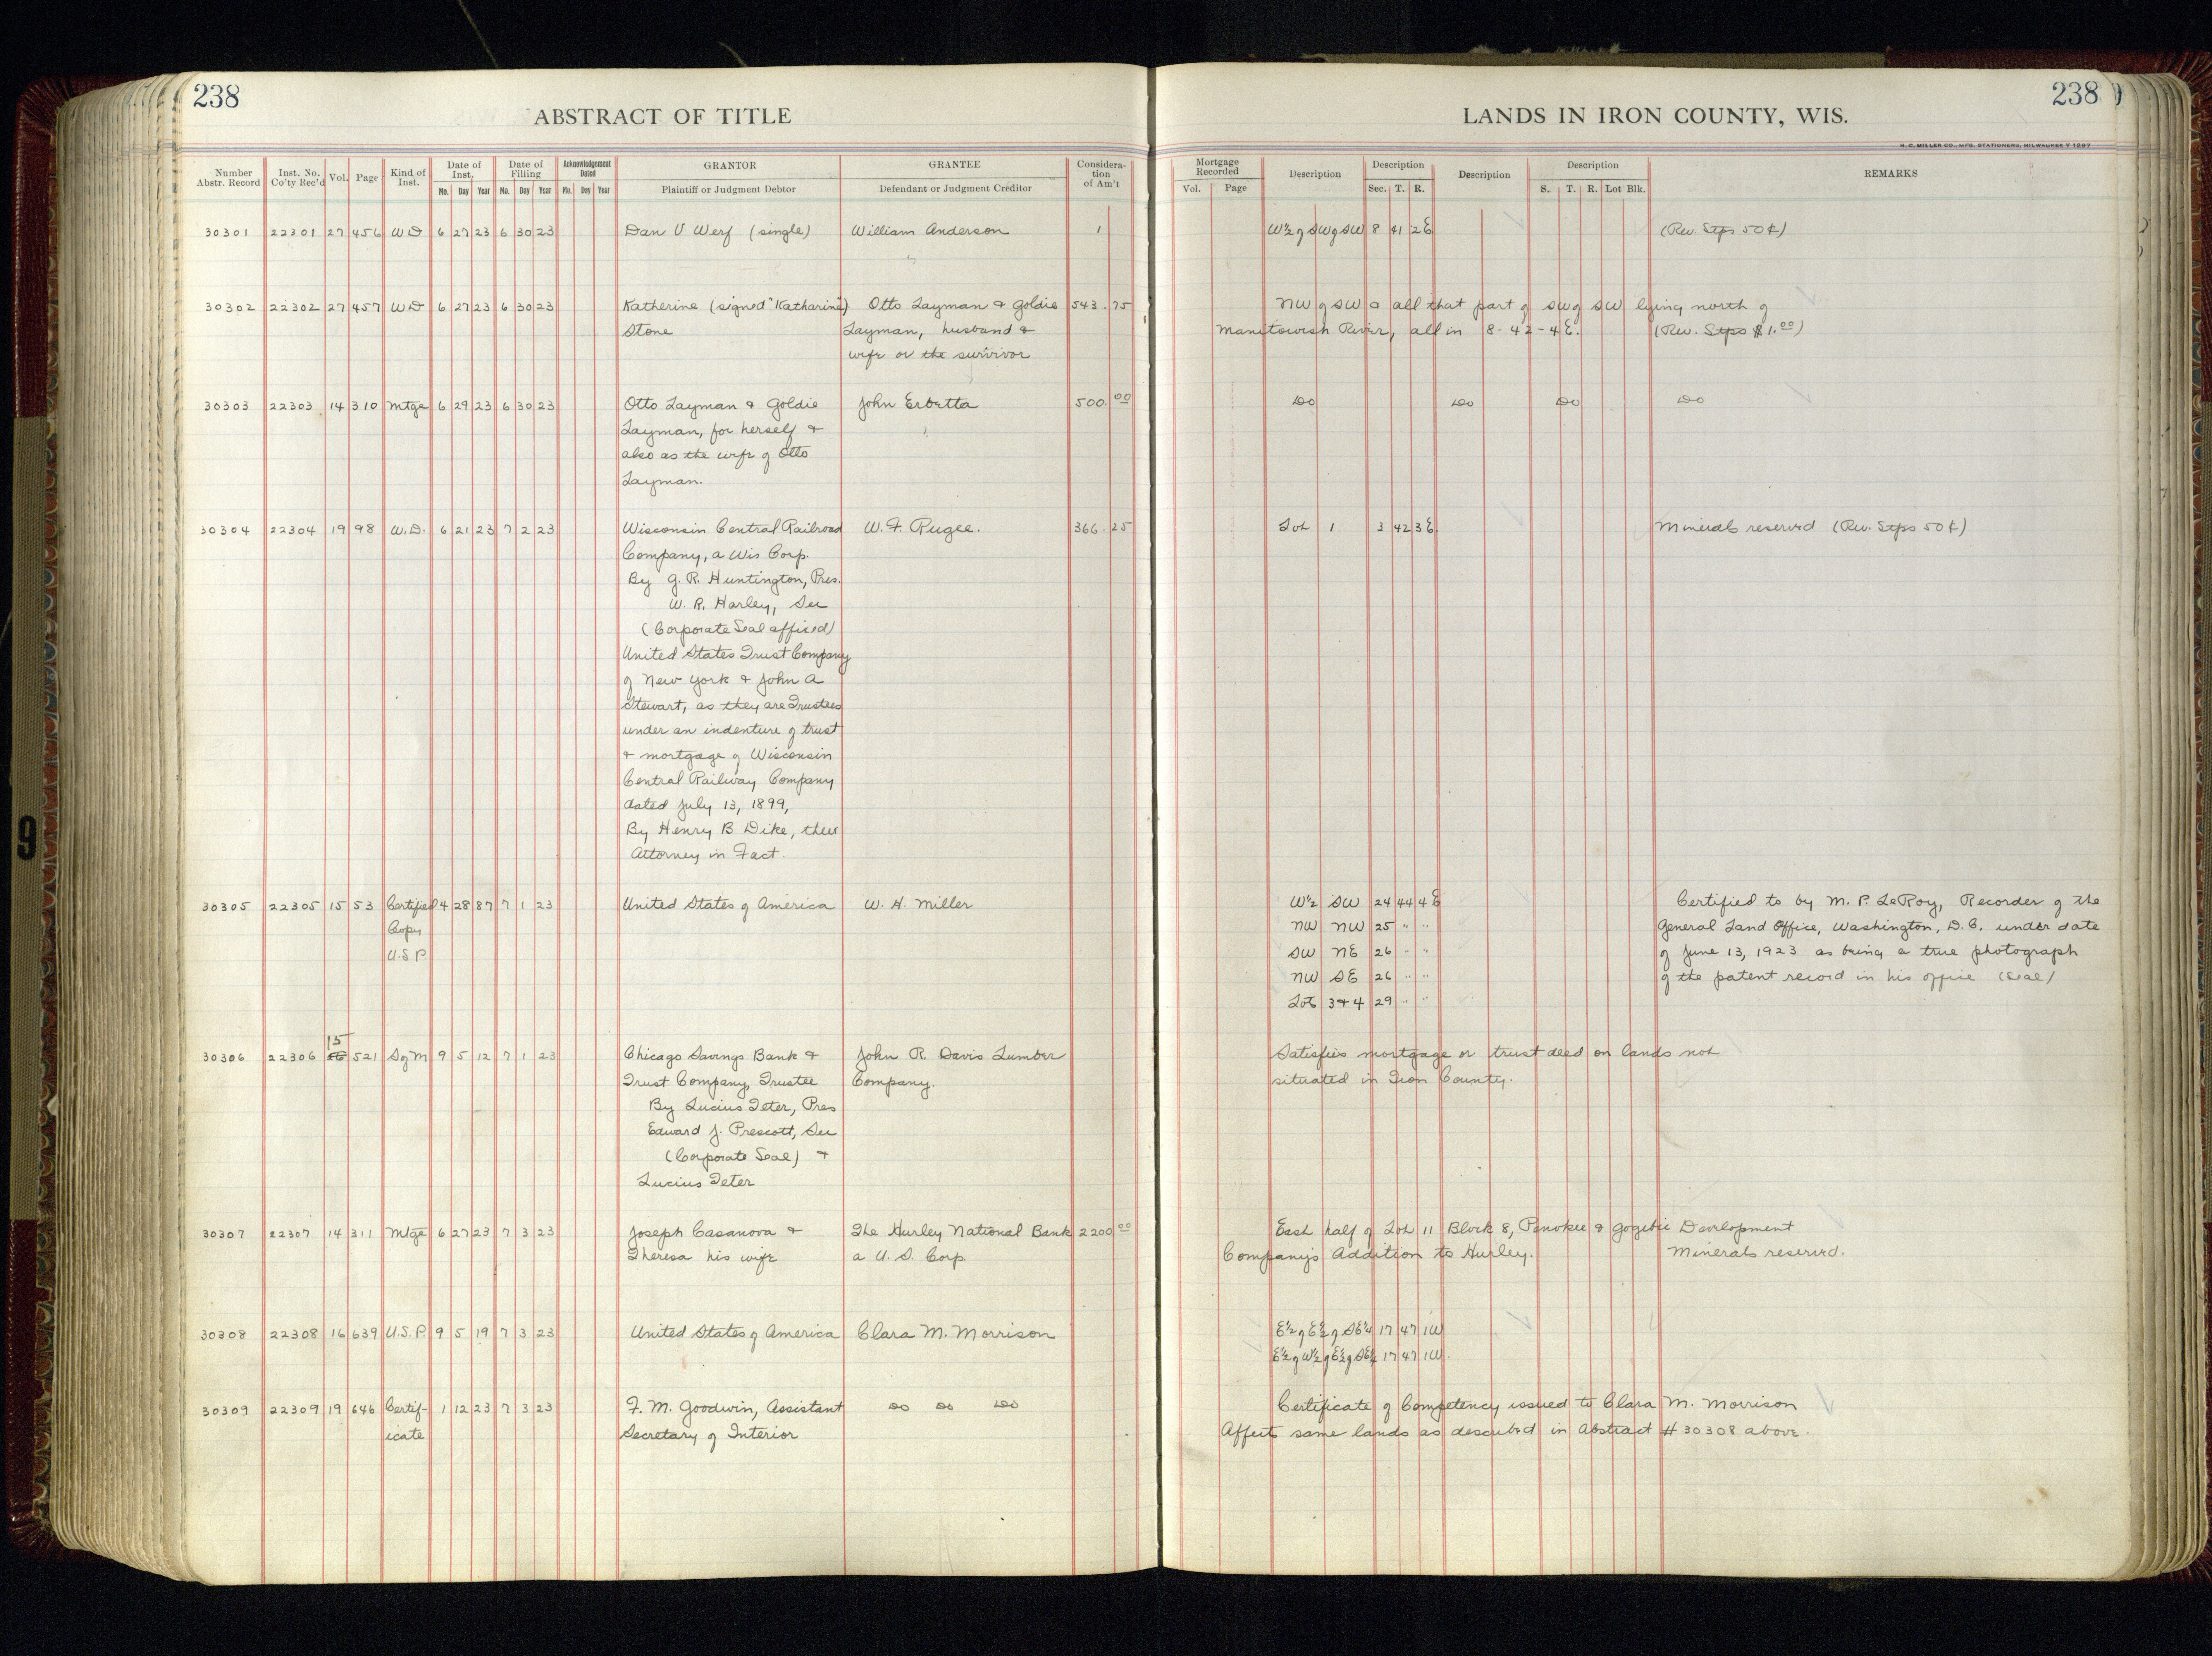 238
ABSTRACT OF TITLE
LANDS IN IRON COUNTY, WIS.
238
H. C. MILLER CO., MFG. STATIONERS, MILWAUKEE
Number Abstr. Record | Inst. No. Co'ty Rec'd | Vol. | Page | Kind of Inst. | Date of Inst. Mo. Day Year | Date of Filling Mo. Day Year | Acknowledgement Dated Mo. Day Year | GRANTOR Plaintiff or Judgment Debtor | GRANTEE Defendant or Judgment Creditor | Consideration of Am't | Mortgage Recorded Vol. Page | Description | Description Sec. T. R. | Description | Description S. T. R. Lot Blk. | REMARKS
30301 22301 27 456 WD 6 27 23 6 30 23 Dan V Werf (single) William Anderson 1 W½ of SW of SW 8 41 2E (Rev. Stps 50¢)
30302 22302 27 457 WD 6 27 23 6 30 23 Katherine (signed "Katharine") Otto Layman & Goldie 543.75 NW of SW & all that part of SW of SW lying north of
Stone Layman, husband & Manitowish River, all in 8-42-4E. (Rev. Stps $1.00)
wife or the survivor
30303 22303 14 310 Mtge 6 29 23 6 30 23 Otto Layman & Goldie John Erbetta 500.00 Do Do Do Do
Layman, for herself &
also as the wife of Otto
Layman.
30304 22304 19 98 W.D. 6 21 23 7 2 23 Wisconsin Central Railroad W. F. Rugee. 366.25 Lot 1 3 42 3E Minerals reserved (Rev. Stps 50¢)
Company, a Wis Corp.
By G. R. Huntington, Pres.
W. R. Harley, Sec
(Corporate Seal affixed)
United States Trust Company
of New York & John A
Stewart, as they are Trustees
under an indenture of trust
& mortgage of Wisconsin
Central Railway Company
dated July 13, 1899,
By Henry B Dike, their
Attorney in Fact.
30305 22305 15 53 Certified 4 28 87 7 1 23 United States of America W. H. Miller W½ SW 24 44 4E Certified to by M. P. LeRoy, Recorder of the
Copy NW NW 25 " " General Land Office, Washington, D.C. under date
U.S P. SW NE 26 " " of June 13, 1923 as being a true photograph
NW SE 26 " " of the patent record in his office (Seal)
Lots 3 & 4 29 " "
15
30306 22306 521 SgM 9 5 12 7 1 23 Chicago Savings Bank & John R. Davis Lumber Satisfies mortgage or trust deed on lands not
Trust Company, Trustee Company. situated in Iron County.
By Lucius Teter, Pres
Edward J. Prescott, Sec
(Corporate Seal) &
Lucius Teter
30307 22307 14 311 Mtge 6 27 23 7 3 23 Joseph Casanova & The Hurley National Bank 2200 00 East half of Lot 11 Block 8, Penokee & Gogebic Development
Theresa his wife a U. S. Corp. Company's Addition to Hurley. Minerals reserved.
30308 22308 16 639 U.S.P. 9 5 19 7 3 23 United States of America Clara M. Morrison E½ of E½ of SE¼ 17 47 1W
E½ of W½ of E½ of SE¼ 17 47 1W.
30309 22309 19 646 Certif- 1 12 23 7 3 23 F. M. Goodwin, Assistant Do Do Do Certificate of Competency issued to Clara M. Morrison
icate Secretary of Interior Affects same lands as described in Abstract # 30308 above.
9